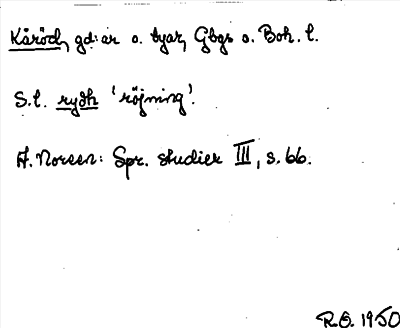 Kåröd, gd:ar o. byar, Gbgs o. Boh. l.
S.l. rydh 'röjning'.
A. Noreen: Spr. studier III, s. 66.
R.O. 1950